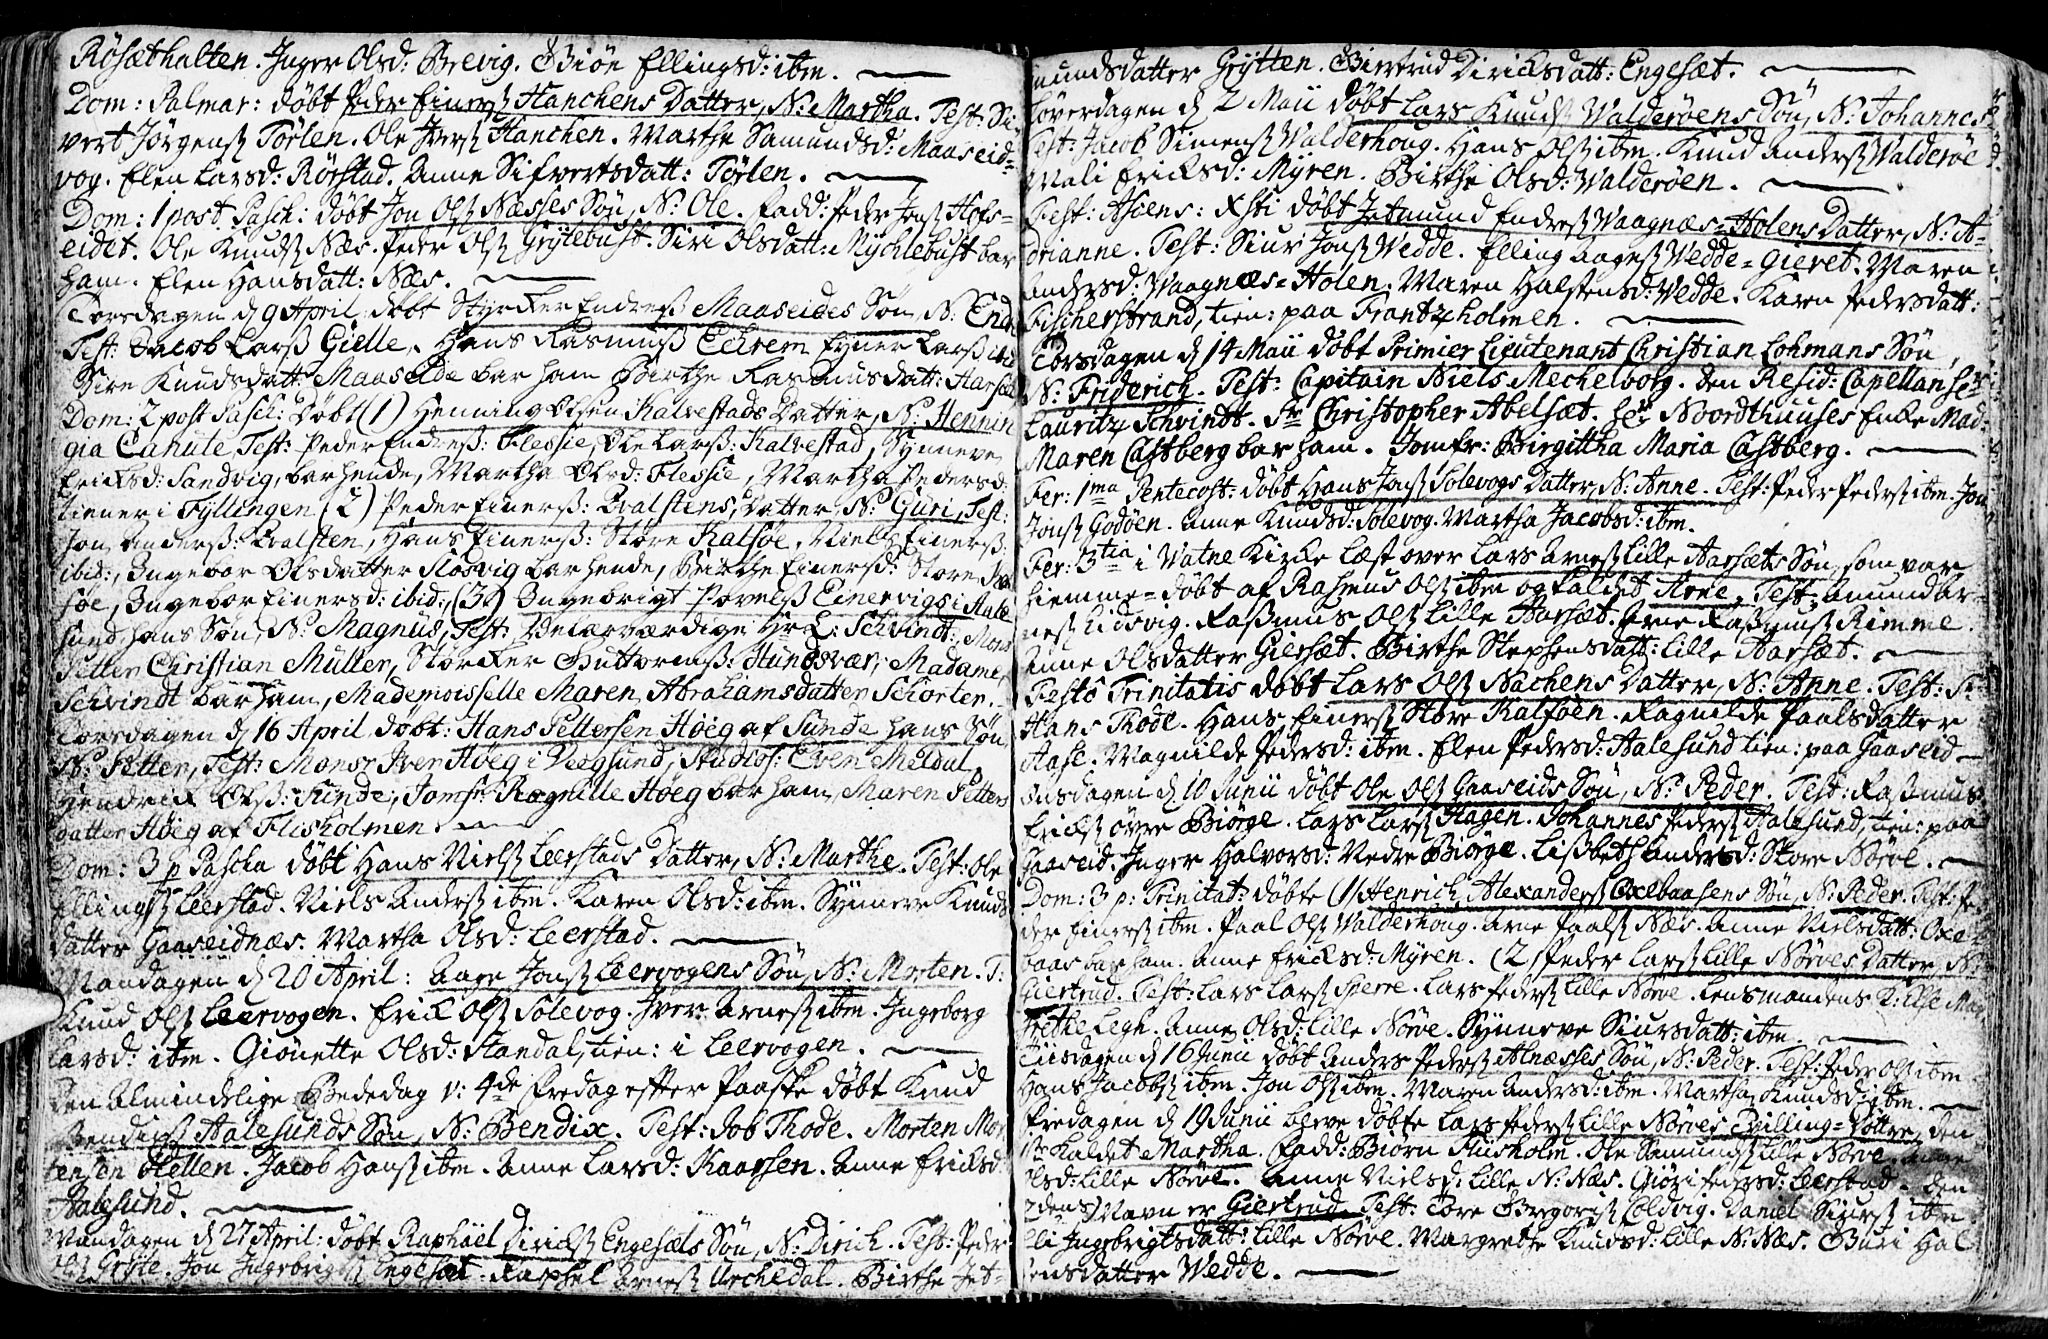 Røsæthalten. Inger Olsd: Brevig. Giøe Ellingsd: ibm.
Dom: Palmar: døbt Peder Einerß Hanchens Datter, N: Martha. Test: Si-
vert Jørgenß Tørlen. Ole Iverß Hanchen. Marthe Samundsd: Maaseid-
vog. Elen Larsd: Rørstad. Anne Sifvertsdatt: Tørlen.
Dom: 1 post Pasch: døbt Jon Olß Næsses Søn, N: Ole. Fadd: Peder Jenß Hofs-
eidet. Ole Knudß Næs. Peder Olß Grytebust. Siri Olsdatt: Mychlebust bar
ham. Elen Hansdatt: Næs.
Torsdagen d 9 April døbt Styrcker Endreß Maaseides Søn, N: End
Test: Jacob Larß Gielle, Hans Rasmusß Eckrem Eyner Larß ibid
Sire Knudsdatt: Maaseide bar ham Birthe Rasmusdatt:
Dom: 2 post Pasch: Døbt (1) Henning Olsen Kalvestads Datter, N: Hennin
gia Canute, Test: Peder Endreß: Flessie, Ole Larß: Kalvestad, Synneve
Ericksd: Sandvig, bar hende, Martha Olsd: Flessie, Martha Pedersd:
tiener i Fyllingen (2) Peder Einerß: Qvalstens Datter N: Guri, Test:
Jon Anderß: Qvalsten, Hans Einerß: Støre Kalsøe, Niels Einerß:
ibid:, Ingebor Olsdatter Slosvig bar hende, Birthe Einersd: Store Kal
søe, Ingebor Einersd: ibid:, (3) Ingebrigt Einervigs i Aale
sund hans Søn, N: Magnus, Test: Velærværdige Hr L: Schvindt, Mons
Petter Christian Müller, Størcker Guttormß: Hundsvær, Madame
Schvindt bar ham, Mademoisselle Maren Abrahamsdatter Schorter.
Torsdagen d 16 April døbt: Hans Pettersen Høeg af Sunde hans Søn
N: Petter, Test: Monsr Iver Høeg i Vegsund, Studios: Even Meldal,
Hendrick Olß: Sunde, Jomfr: Ragnille Høeg bar ham, Maren Petters
datter Høeg af Flisholmen.
Dom: 3 p Pascha døbt Hans Nielß Leerstads Datter, N: Marthe. Test: Ole
Ellingß Leerstad. Niels Anderß ibm. Karen Olsd: ibm. Synneve Knuds
datter Gaaseidnæs. Martha Olsd: Leerstad.
Mandagen d 20 April: Aage Jonß Leervogens Søn, N: Morten. T:
Knud Olß Leervogen. Erick Olß Solevog. Iver Arneß ibm. Ingeborg
Larsd: ibm. Giønette Olsd: Standal, tien: i Leervogen.
Den Almindelige Bededag v: 4de Fredag efter Paaske døbt Knud
Bendixß Aalesunds Søn, N: Bendix. Test: Job Thode. Morten Mor
tensen Hellen. Jacob Hansß ibm. Anne Larsd: Kaarsen. Anne Ericksd:
Aalesund.
Mandagen d 27 April: døbt Raphaël Dirichß Engesæts Søn, N: Dirich. Test: Peder
Olß Gryte. Jon Ingebrigtß Engesæt. Raphel Arneß Urchedal. Birthe Jet-
mundsdatter Grytten. Giertrud Diricksdatt: Engesæt.
Løverdagen d 2 Maii døbt Lars Knudß Walderøens Søn, N: Johannes
Test: Jacob Simenß Walderhoug. Hans Olß ibm. Knud Anderß Walderøe
Mali Ericksd: Myren. Birthe Olsd: Walderøen.
Fest: Ascens: Xsti døbt Jetmund Endreß Waagnæs-Holens Datter, N: A-
drianne. Test: Siur Jonß Wedde. Elling Aageß Wedde-Gieret. Maren
Andersd: Waagnæs-Holen. Maren Halstensd: Wedde. Karen Pedersdatt:
Fischerstrand, tien: paa Frantzholmen.
Torsdagen d 14 Maii døbt Primier Lieutenant Christian Lohmans Søn,
N: Friderich. Test: Capitain Niels Mechelborg. den Resid: Capellan Her
Lauritz Schvindt. Sr Christopher Abelsæt. Hr Noordthuuses Enke Mad:
Maren Castberg bar ham. Jomfr: Birgittha Maria Castberg.
Fer: 1ma Pentecost: døbt Hans Jonß Solevogs Datter, N: Anne. Test: Peder Pederß ibm. Jon
Jonß Godøen. Anne Knudsd: Solevog. Martha Jacobsd: ibm.
Fer: 3tia i Vatne Kircke læst over Lars Arneß Lille Aarsæts Søn, som var
hiemme-døbt af Rasmus Olß ibm og kaldet Arne, Test: Amund Ar-
neß Lidsvig. Rasmus Olß Lille Aarsæt. Arne Rasmusß Rimme.
Anne Olsdatter Giersæt. Birthe Stephensdatt: Lille Aarsæt.
Festo Trinitatis døbt Lars Olß Nachens Datter, N: Anne. Test: Sr
Hans Thode. Hans Einerß Store Kalsøen. Ragnilde Paalsdatter
Aase. Magnilde Pedersd: ibm. Elen Pedersd: Aalesund tien: paa Gaaseid
Onsdagen d 10 Junii døbt Ole Olß Gaaseids Søn, N: Peder. Test: Rasmus
Erickß øvre Biørge. Lars Larß Hagen. Johannes Pederß Aalesund, tien: paa
Gaaseid. Inger Halvorsd: Nedre Biørge. Lisbeth Andersd: Store Nørve.
Dom: 3 p: Trinitat: døbte (1) Henrich Alexanderß Oxebaasens Søn, N: Peder. Test: Pe-
der Einerß ibm. Paal Olß Walderhoug. Arne Paalß Næs. Anne Nielsdatt: Oxe-
baas bar ham. Anne Ericksd: Myren. (2) Peder Larß Lille Nørves Datter, N:
Giertrud. Test: Lars Larß Sperre. Lars Pederß Lille Nørve. Lensmandens K: Else Mar
grethe Legh. Anne Olsd: Lille Nørve. Synneve Siursdatt: ibm.
Tiisdagen d 16 Junii døbt Anders Pederß Alnæsses Søn, N: Peder. Test: Peder Olß ibm
Hans Jacobß ibm. Jon Olß ibm. Maren Andersd: ibm. Martha Knudsd: ibm.
Fredagen d 19 Junii bleve døbte Lars Pederß Lille Nørves Tvilling-Døttre, den
1ste kaldet Martha. Fadd: Biørn Fliisholm. Ole Samundß Lille Nørve. Anne
Olsd: Lille Nørve. Anne Nielsd: Lille N: Næs. Giøri Pedersd: Leerstad. Den
2dens Navn er Giertrud. Test: Tore Gregoriß Coldvig. Daniel Siurß ibm.
Eli Ingebrigtsdatt: Lille Nørve. Margrethe Knudsd: Lille N: Næs. Guri Hal
stensdatter Wedde.